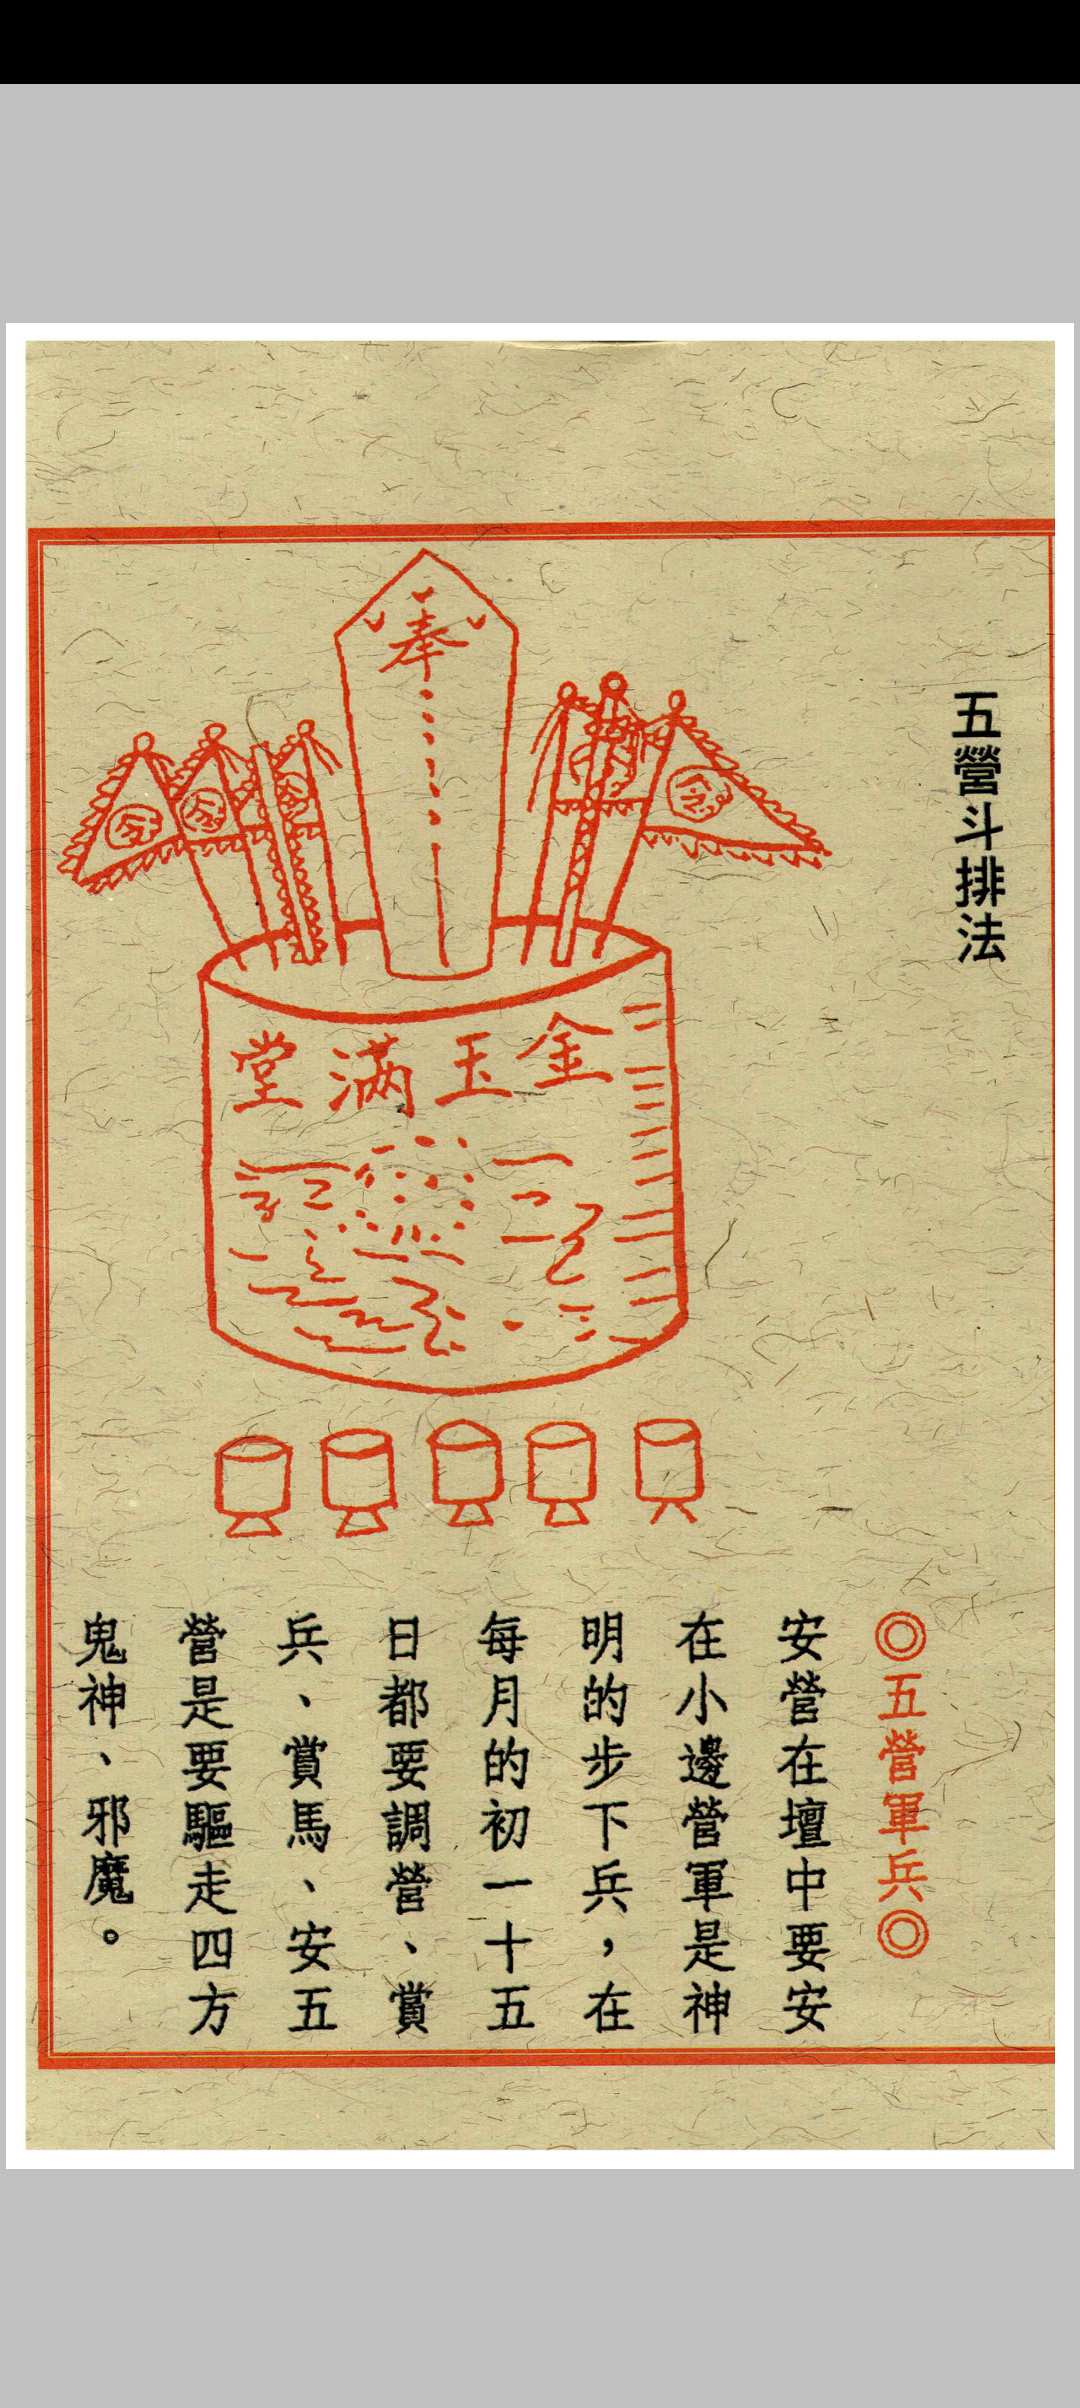 五營斗排法
奉
令
令
令
令
金玉滿堂
◎五營軍兵◎
安營在壇中要安
在小邊營軍是神
明的步下兵，在
每月的初一十五
日都要調營、賞
兵、賞馬、安五
營是要驅走四方
鬼神、邪魔。